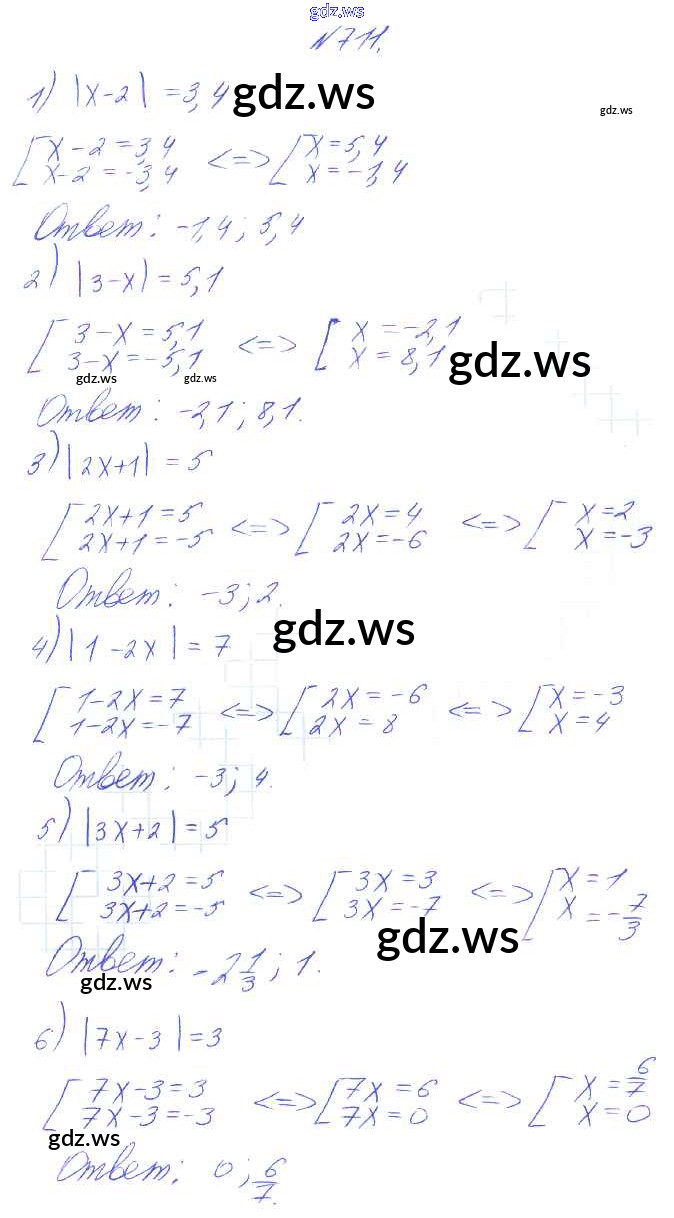 gdz.ws
N711.
1) |x-2| = 3,4 gdz.ws
gdz.ws
[ x-2 = 3,4 <=> [ x = 5,4
x-2 = -3,4 x = -1,4
Ответ: -1,4; 5,4
2) |3-x| = 5,1
[ 3-x = 5,1 <=> [ x = -2,1
3-x = -5,1 x = 8,1 gdz.ws
gdz.ws gdz.ws
Ответ: -2,1; 8,1.
3) |2x+1| = 5
[ 2x+1 = 5 <=> [ 2x = 4 <=> [ x = 2
2x+1 = -5 2x = -6 x = -3
Ответ: -3; 2.
gdz.ws
4) |1-2x| = 7
[ 1-2x = 7 <=> [ 2x = -6 <=> [ x = -3
1-2x = -7 2x = 8 x = 4
Ответ: -3; 4.
5) |3x+2| = 5
[ 3x+2 = 5 <=> [ 3x = 3 <=> [ x = 1
3x+2 = -5 3x = -7 x = -7/3
gdz.ws
Ответ: -2 1/3; 1.
gdz.ws
6) |7x-3| = 3
[ 7x-3 = 3 <=> [ 7x = 6 <=> [ x = 6/7
7x-3 = -3 7x = 0 x = 0
gdz.ws
Ответ: 0; 6/7.